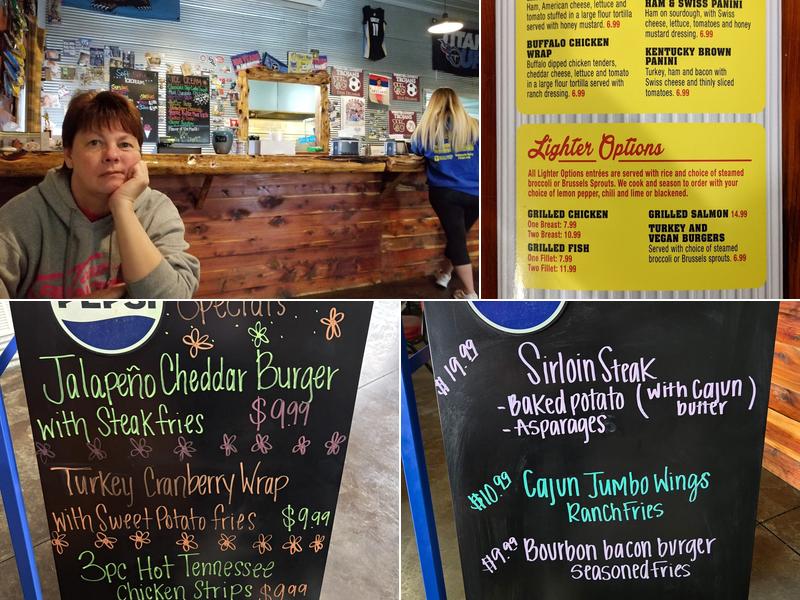 TITANS
TROJANS
TROJANS
TROJANS
Soft
ICE CREAM
Ham, American cheese, lettuce and
tomato stuffed in a large flour tortilla
served with honey mustard. 6.99
BUFFALO CHICKEN
WRAP
Buffalo dipped chicken tenders,
cheddar cheese, lettuce and tomato
in a large flour tortilla served with
ranch dressing. 6.99
HAM & SWISS PANINI
Ham on sourdough, with Swiss
cheese, lettuce, tomatoes and honey
mustard dressing. 6.99
KENTUCKY BROWN
PANINI
Turkey, ham and bacon with
Swiss cheese and thinly sliced
tomatoes. 6.99
Lighter Options
All Lighter Options entrées are served with rice and choice of steamed
broccoli or Brussels Sprouts. We cook and season to order with your
choice of lemon pepper, chili and lime or blackened.
GRILLED CHICKEN
One Breast: 7.99
Two Breast: 10.99
GRILLED FISH
One Fillet: 7.99
Two Fillet: 11.99
GRILLED SALMON 14.99
TURKEY AND
VEGAN BURGERS
Served with choice of steamed
broccoli or Brussels sprouts. 6.99
PEPSI
Specials
Jalapeño Cheddar Burger
with Steak fries $9.99
Turkey Cranberry Wrap
with Sweet Potato fries $9.99
3pc Hot Tennessee
Chicken Strips $9.99
$19.99 Sirloin Steak
- Baked potato (with Cajun
butter)
- Asparages
$10.99 Cajun Jumbo Wings
Ranch Fries
$9.99 Bourbon bacon burger
Seasoned Fries